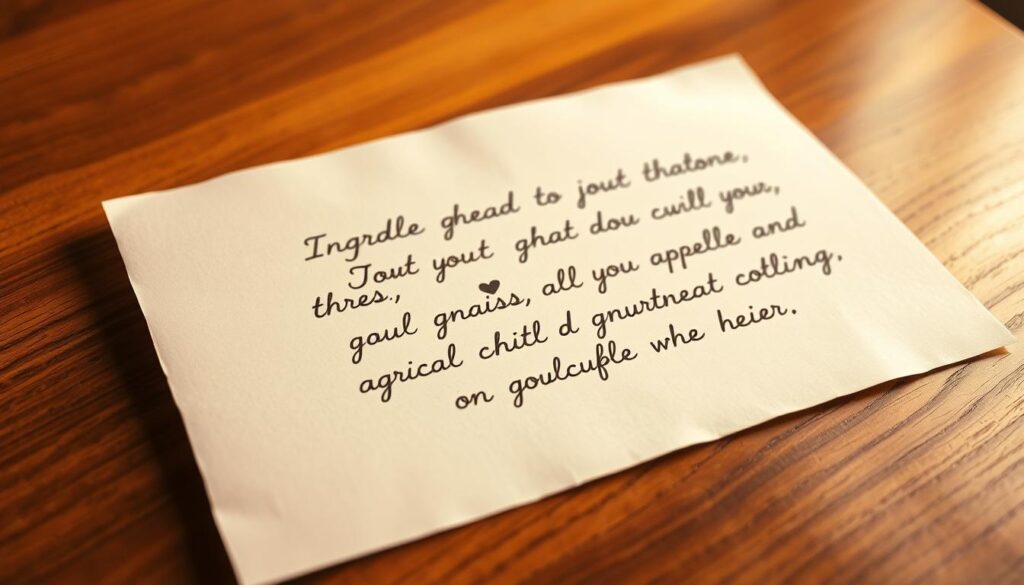 Ingrdle ghead to jout thatone,
Tout yout ghat dou cuill your,
thres.,
goul gnaiss, all you appelle and
agrical chitl d gnurtneat cotling,
on goulcufle whe heier.